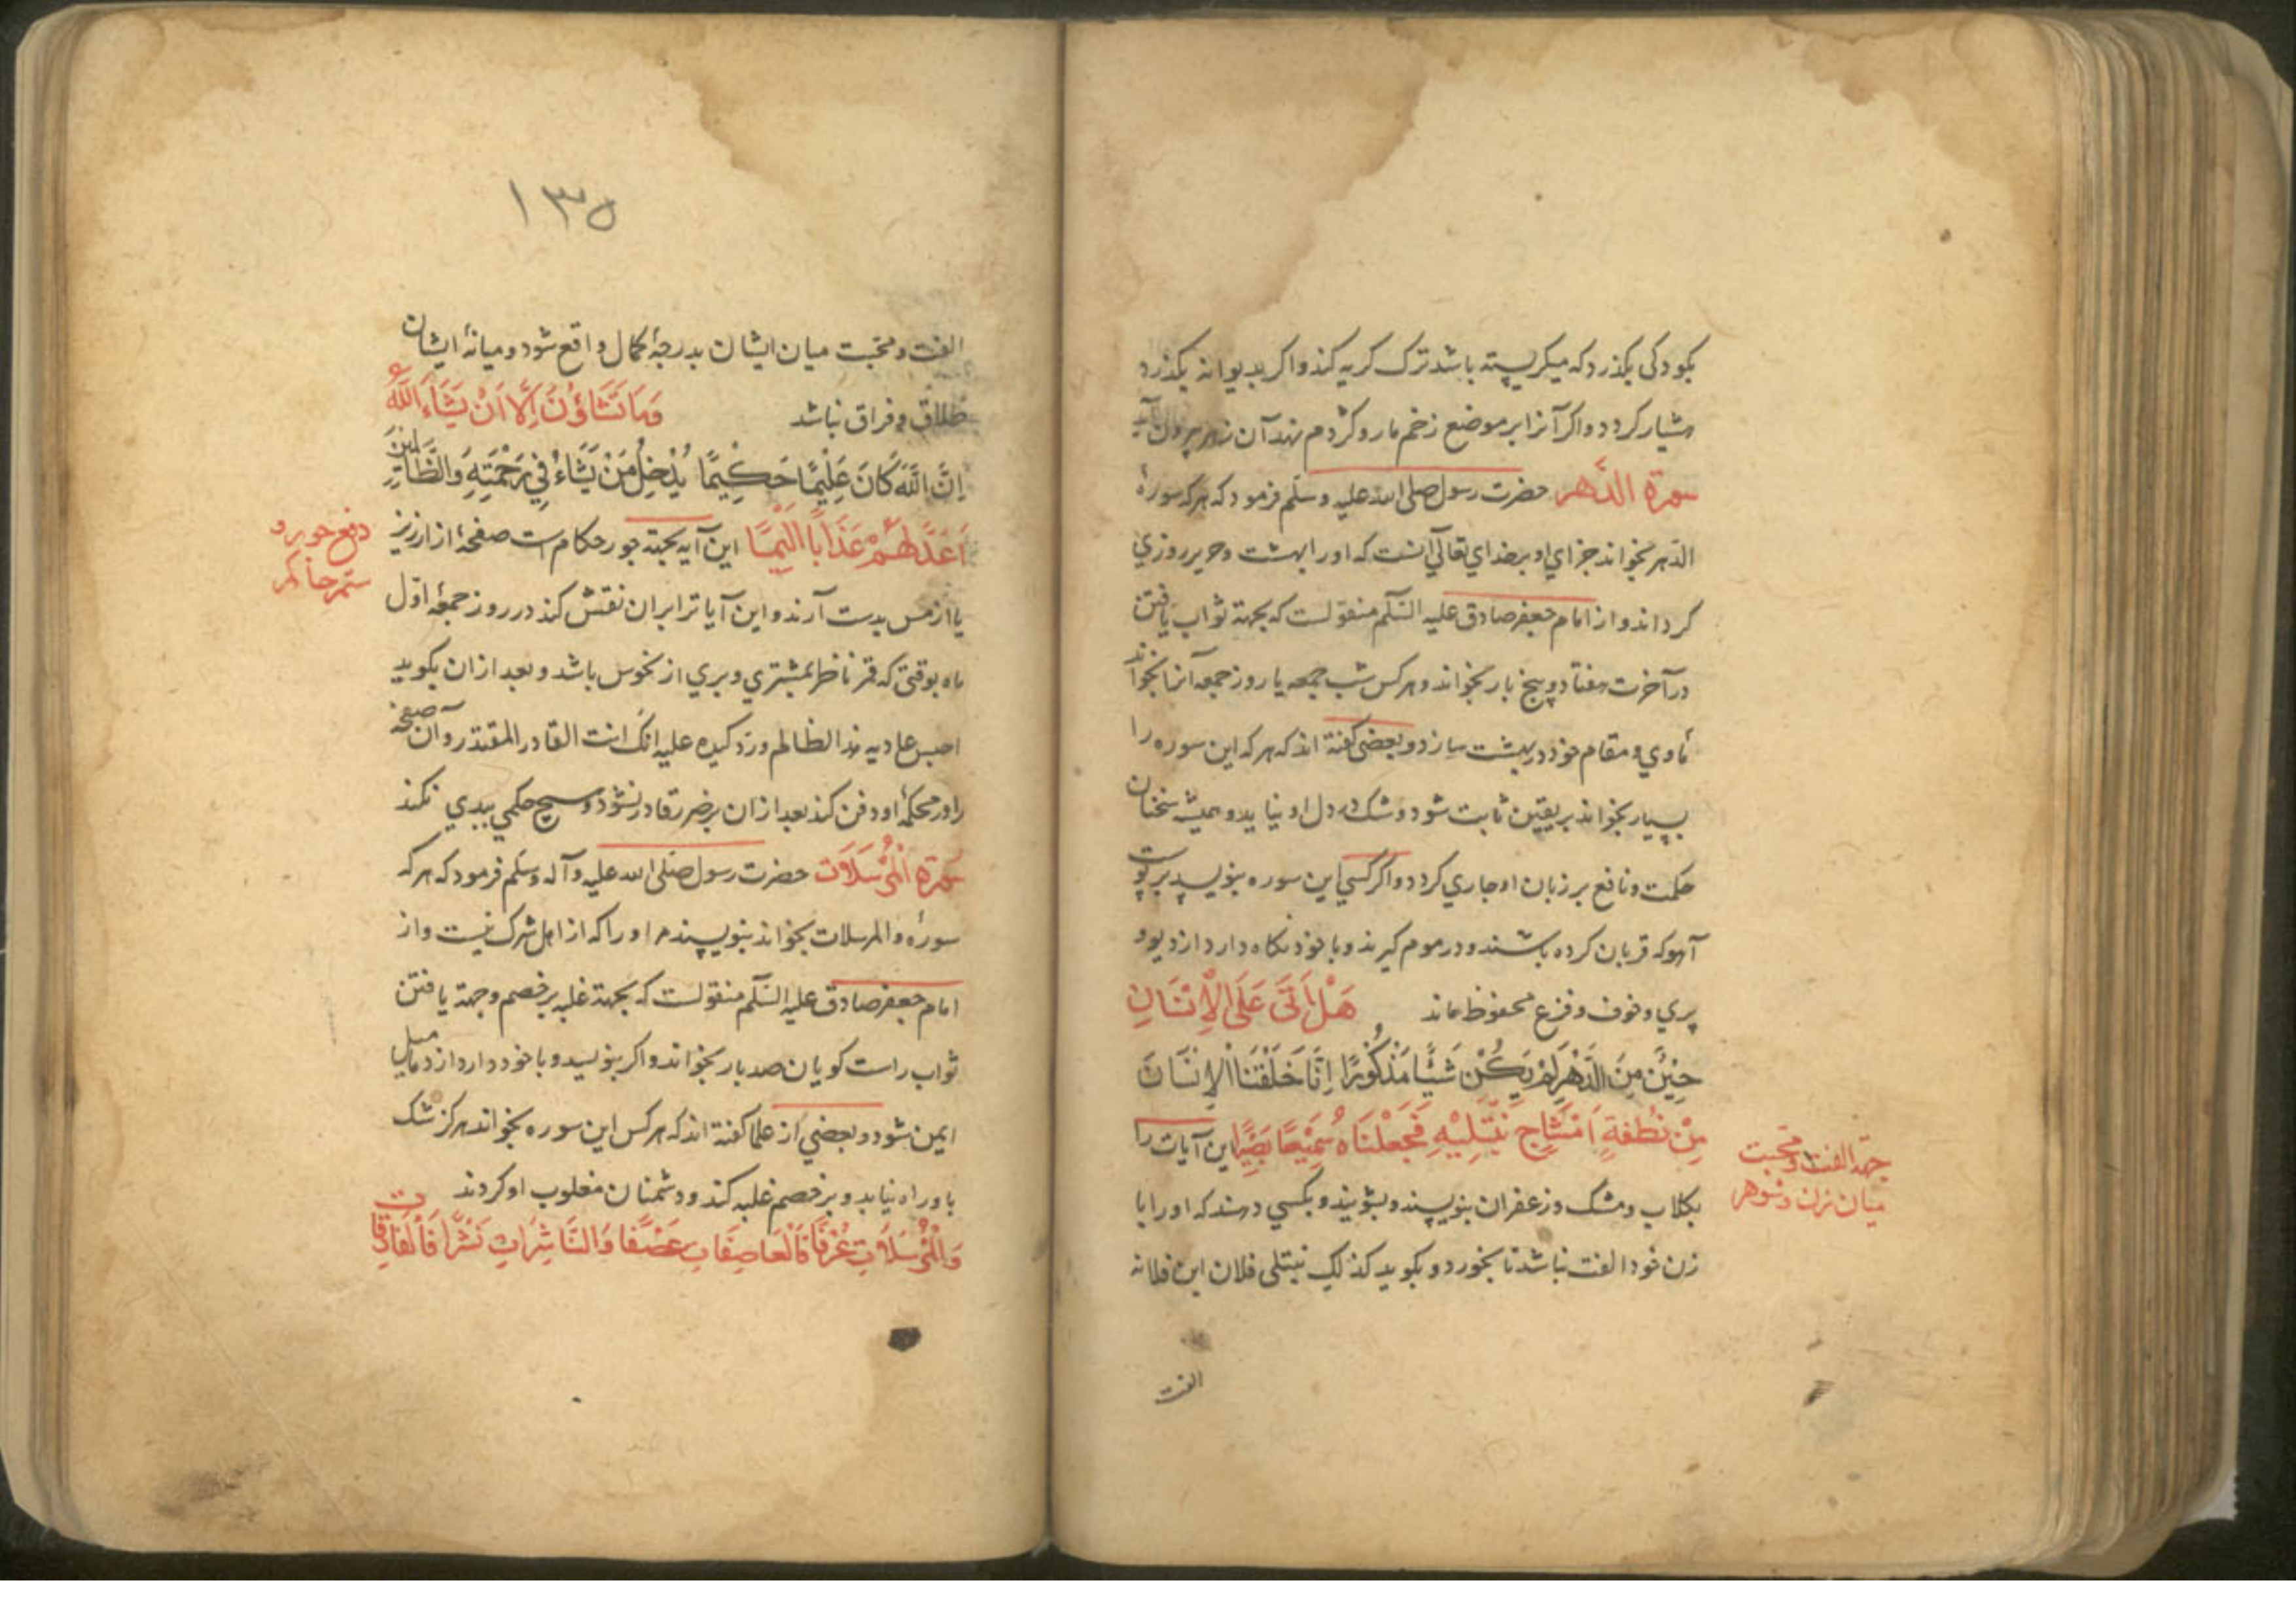 بکودکی بکذرد که میکریسته باشد ترک کریه کند و اکر بدیوانه بکذرد
هشیار کردد و اکر آنرا بر موضع زخم مار و کژدم نهد آن زهر بیرون آید
سورة الدهر حضرت رسول صلی الله علیه وسلم فرمود که هر که سورهٔ
الدهر بخواند جزای او بر خدای تعالی آنست که او را بهشت و حریر روزی
کرداند و از امام جعفر صادق علیه السلم منقولست که بجهة ثواب یافتن
در آخرت هفتاد و پنج بار بخواند و هر کس شب جمعه یا روز جمعه آنرا بخواند
مأوی و مقام خود در بهشت سازد و بعضی کفته اند که هر که این سوره را
بسیار بخواند بر یقین ثابت شود و شک در دل او نیاید و همیشه سخنان
حکمت و نافع بر زبان او جاری کردد و اکر کسی این سوره بنویسد بر پوست
آهو که قربان کرده باشند و در موم کیرند و با خود نکاه دارد از دیو و
پری و خوف و فزع محفوظ ماند هَلْ أَتَی عَلَی الْإِنْسَانِ
حِیْنٌ مِنَ الدَّهْرِ لَمْ یَکُنْ شَیْئًا مَذْکُوْرًا إِنَّا خَلَقْنَا الْإِنْسَانَ
مِنْ نُطْفَةٍ أَمْشَاجٍ نَبْتَلِیْهِ فَجَعَلْنَاهُ سَمِیْعًا بَصِیْرًا این آیات را
جهة الفت و محبت
میان زن و شوهر
بکلاب و مشک و زعفران بنویسند و بشویند و بکسی دهند که او را با
زن خود الفت نباشد تا بخورد و بکوید کذلک نبتلی فلان ابن فلانه
الفت
١٣٥
الفت و محبت میان ایشان بدرجهٔ کمال واقع شود و میانهٔ ایشان
طلاق و فراق نباشد وَمَا تَشَاؤُنَ إِلَّا أَنْ یَشَاءَ اللَّهُ
إِنَّ اللَّهَ کَانَ عَلِیْمًا حَکِیْمًا یُدْخِلُ مَنْ یَشَاءُ فِی رَحْمَتِهِ وَالظَّالِمِیْنَ
أَعَدَّ لَهُمْ عَذَابًا أَلِیْمًا این آیه بجهة جور حکام است صفحهٔ از ارزیز
دفع جور و
ستم حاکم
یا از مس بدست آرند و این آیات را بران نقش کند در روز جمعهٔ اول
ماه بوقتی که قمر ناظر بمشتری و بری از نحوس باشد و بعد ازان بکوید
احبس عادیه هذا الظالم و رد کیده علیه انک انت القادر المقتدر و آن صفحه
را در محکمهٔ او دفن کند بعد ازان بر ضرر قادر نشود و هیچ حکمی ببدی نکند
سورة المرسلات حضرت رسول صلی الله علیه وآله وسلم فرمود که هر که
سورهٔ والمرسلات بخواند بنویسند مر او را که از اهل شرک نیست و از
امام جعفر صادق علیه السلم منقولست که بجهة غلبه بر خصم و جهة یافتن
ثواب راست کویان صد بار بخواند و اکر بنویسد و با خود دارد از دمامیل
ایمن شود و بعضی از علما کفته اند که هر کس این سوره بخواند هرکز شک
باو راه نیابد و بر خصم غلبه کند و دشمنان مغلوب او کردند
وَالْمُرْسَلَاتِ عُرْفًا فَالْعَاصِفَاتِ عَصْفًا وَالنَّاشِرَاتِ نَشْرًا فَالْفَارِقَاتِ